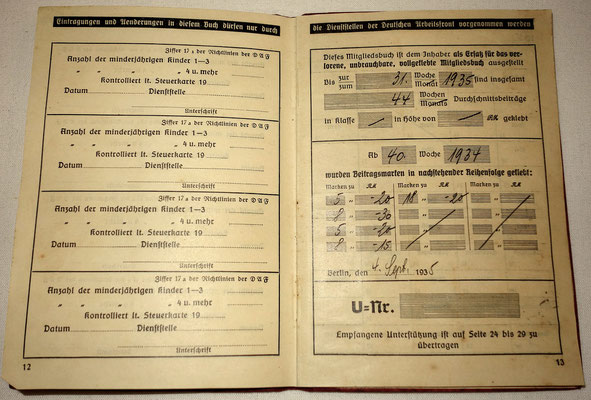 Eintragungen und Aenderungen in diesem Buch dürfen nur durch
Ziffer 17a der Richtlinien der D A F
Anzahl der minderjährigen Kinder 1—3
„ „ „ „ 4 u. mehr
Kontrolliert lt. Steuerkarte 19
Datum Dienststelle:
Unterschrift
Ziffer 17a der Richtlinien der D A F
Anzahl der minderjährigen Kinder 1—3
„ „ „ „ 4 u. mehr
Kontrolliert lt. Steuerkarte 19
Datum Dienststelle:
Unterschrift
Ziffer 17a der Richtlinien der D A F
Anzahl der minderjährigen Kinder 1—3
„ „ „ „ 4 u. mehr
Kontrolliert lt. Steuerkarte 19
Datum Dienststelle:
Unterschrift
Ziffer 17a der Richtlinien der D A F
Anzahl der minderjährigen Kinder 1—3
„ „ „ „ 4 u. mehr
Kontrolliert lt. Steuerkarte 19
Datum Dienststelle:
Unterschrift
12
die Dienststellen der Deutschen Arbeitsfront vorgenommen werden
Dieses Mitgliedsbuch ist dem Inhaber als Ersatz für das ver-
lorene, unbrauchbare, vollgeklebte Mitgliedsbuch ausgestellt
Bis zur zum 31. Woche Monat 1935 sind insgesamt
44 Wochen Monats Durchschnittsbeiträge
in Klasse / in Höhe von / RM geklebt
Ab 40. Woche 1934
wurden Beitragsmarken in nachstehender Reihenfolge geklebt:
Marken zu RM Marken zu RM Marken zu RM
5 „ -20 18 „ -20 „
8 „ -30 „ „
5 „ -20 „ „
8 „ -15 „ „
Berlin, den 4. Sept. 1935
U=Nr.
Empfangene Unterstützung ist auf Seite 24 bis 29 zu
übertragen
13